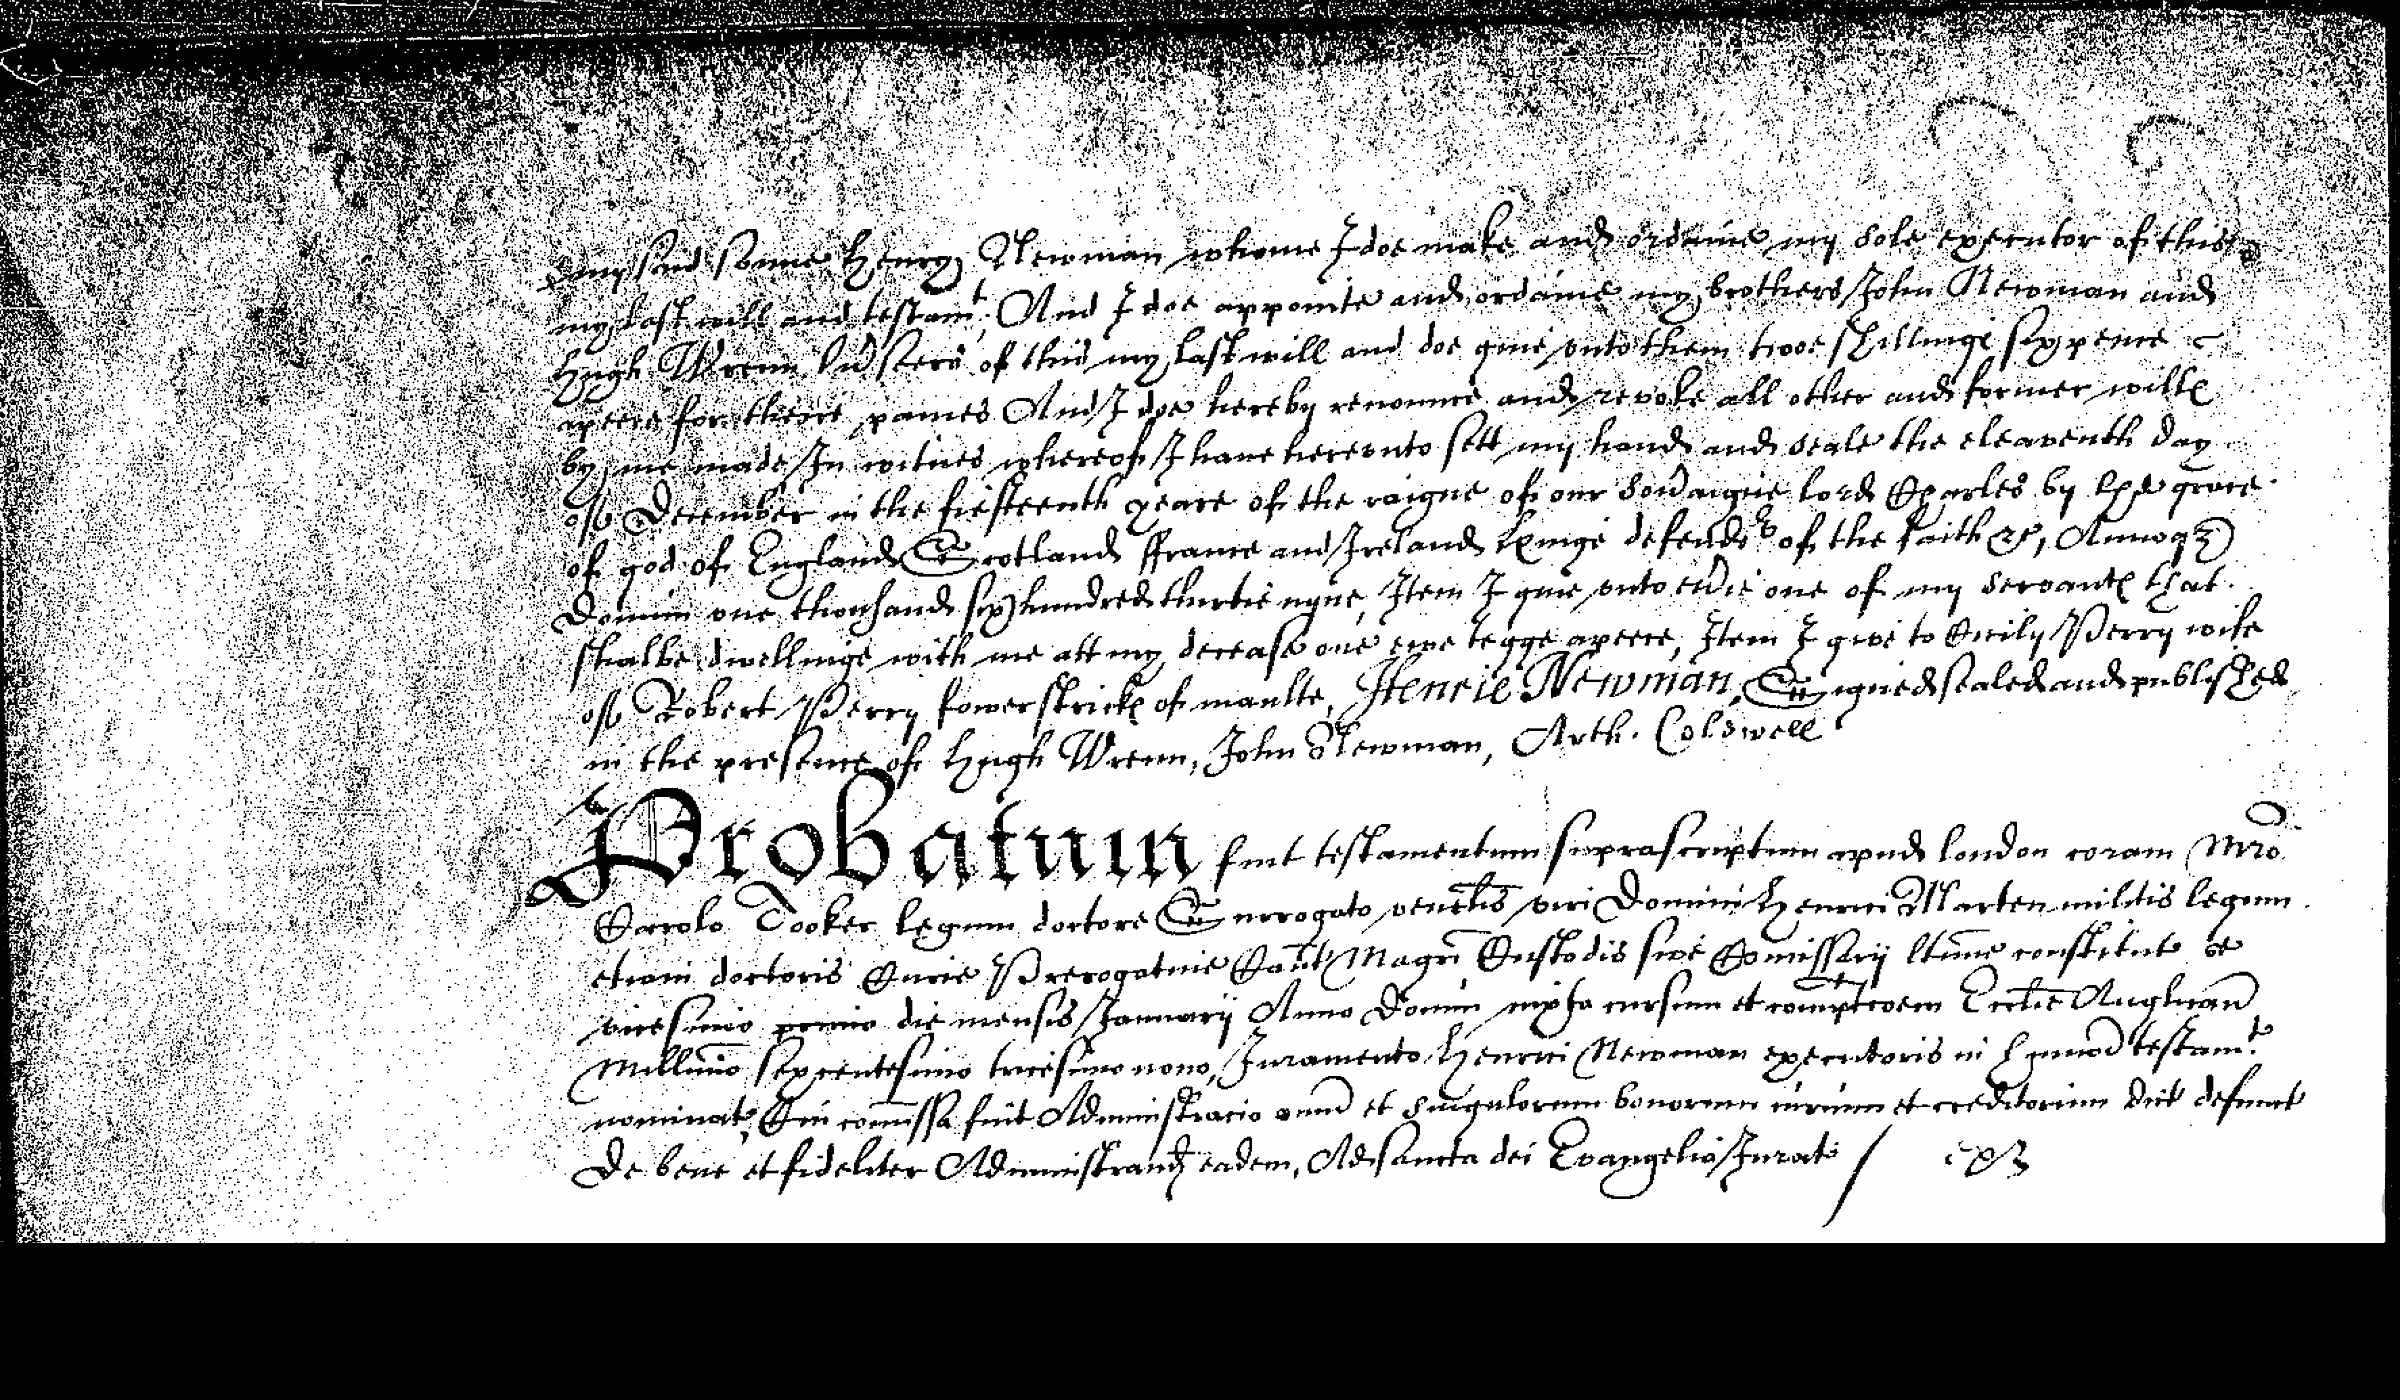 my said sonne Henry Newman whome I doe make and ordaine my sole executor of this
my last will and testamt, And I doe appointe and ordaine my brothers John Newman and
Hugh Wrenn of this my last will and doe give vnto them twoe shillinge sixpence
apeece for theire paines And I doe hereby renounce and revoke all other and former wills
by me made In witnes whereof I have herevnto sett my hand and seale the eleaventh day
of December in the fiefteenth yeare of the raigne of our sovaigne lord Charles by the grace
of god of England Scotland ffrance and Ireland kinge defender of the faith &c, Annoq
Domini one thowsand six hundred thirtie nyne, Item I give vnto evie one of my servants that
shalbe dwellinge with me att my decease one ewe tegge apeece, Item I give to Perry wife
of Robert Perry fower stricks of maulte, Henrie Newman, Signed sealed and published
in the presence of Hugh Wrenn, John Newman, Arth. Coldwell
Probatum fuit testamentum suprascriptum apud London coram Mro
Carolo Tooker legum doctore Surrogato venelis viri Domini Henrici Marten militis legum
etiam doctoris Curie Prerogative Cant Magri Custodis sive Comissarij ltime constitut
vicesimo primo die mensis January Anno Domini iuxta cursum et computacoem Ecclie Anglicane
Millimo sexcentesimo tricesimo nono, Juramento Henrici Newman executoris in hmoi testamto
nominat, Cui comissa fuit Administracio omni et singulorum bonorum iurium et creditorum dict defunct
De bene et fideliter Administrand eadem, Ad sancta dei Evangelia Jurat /   exr